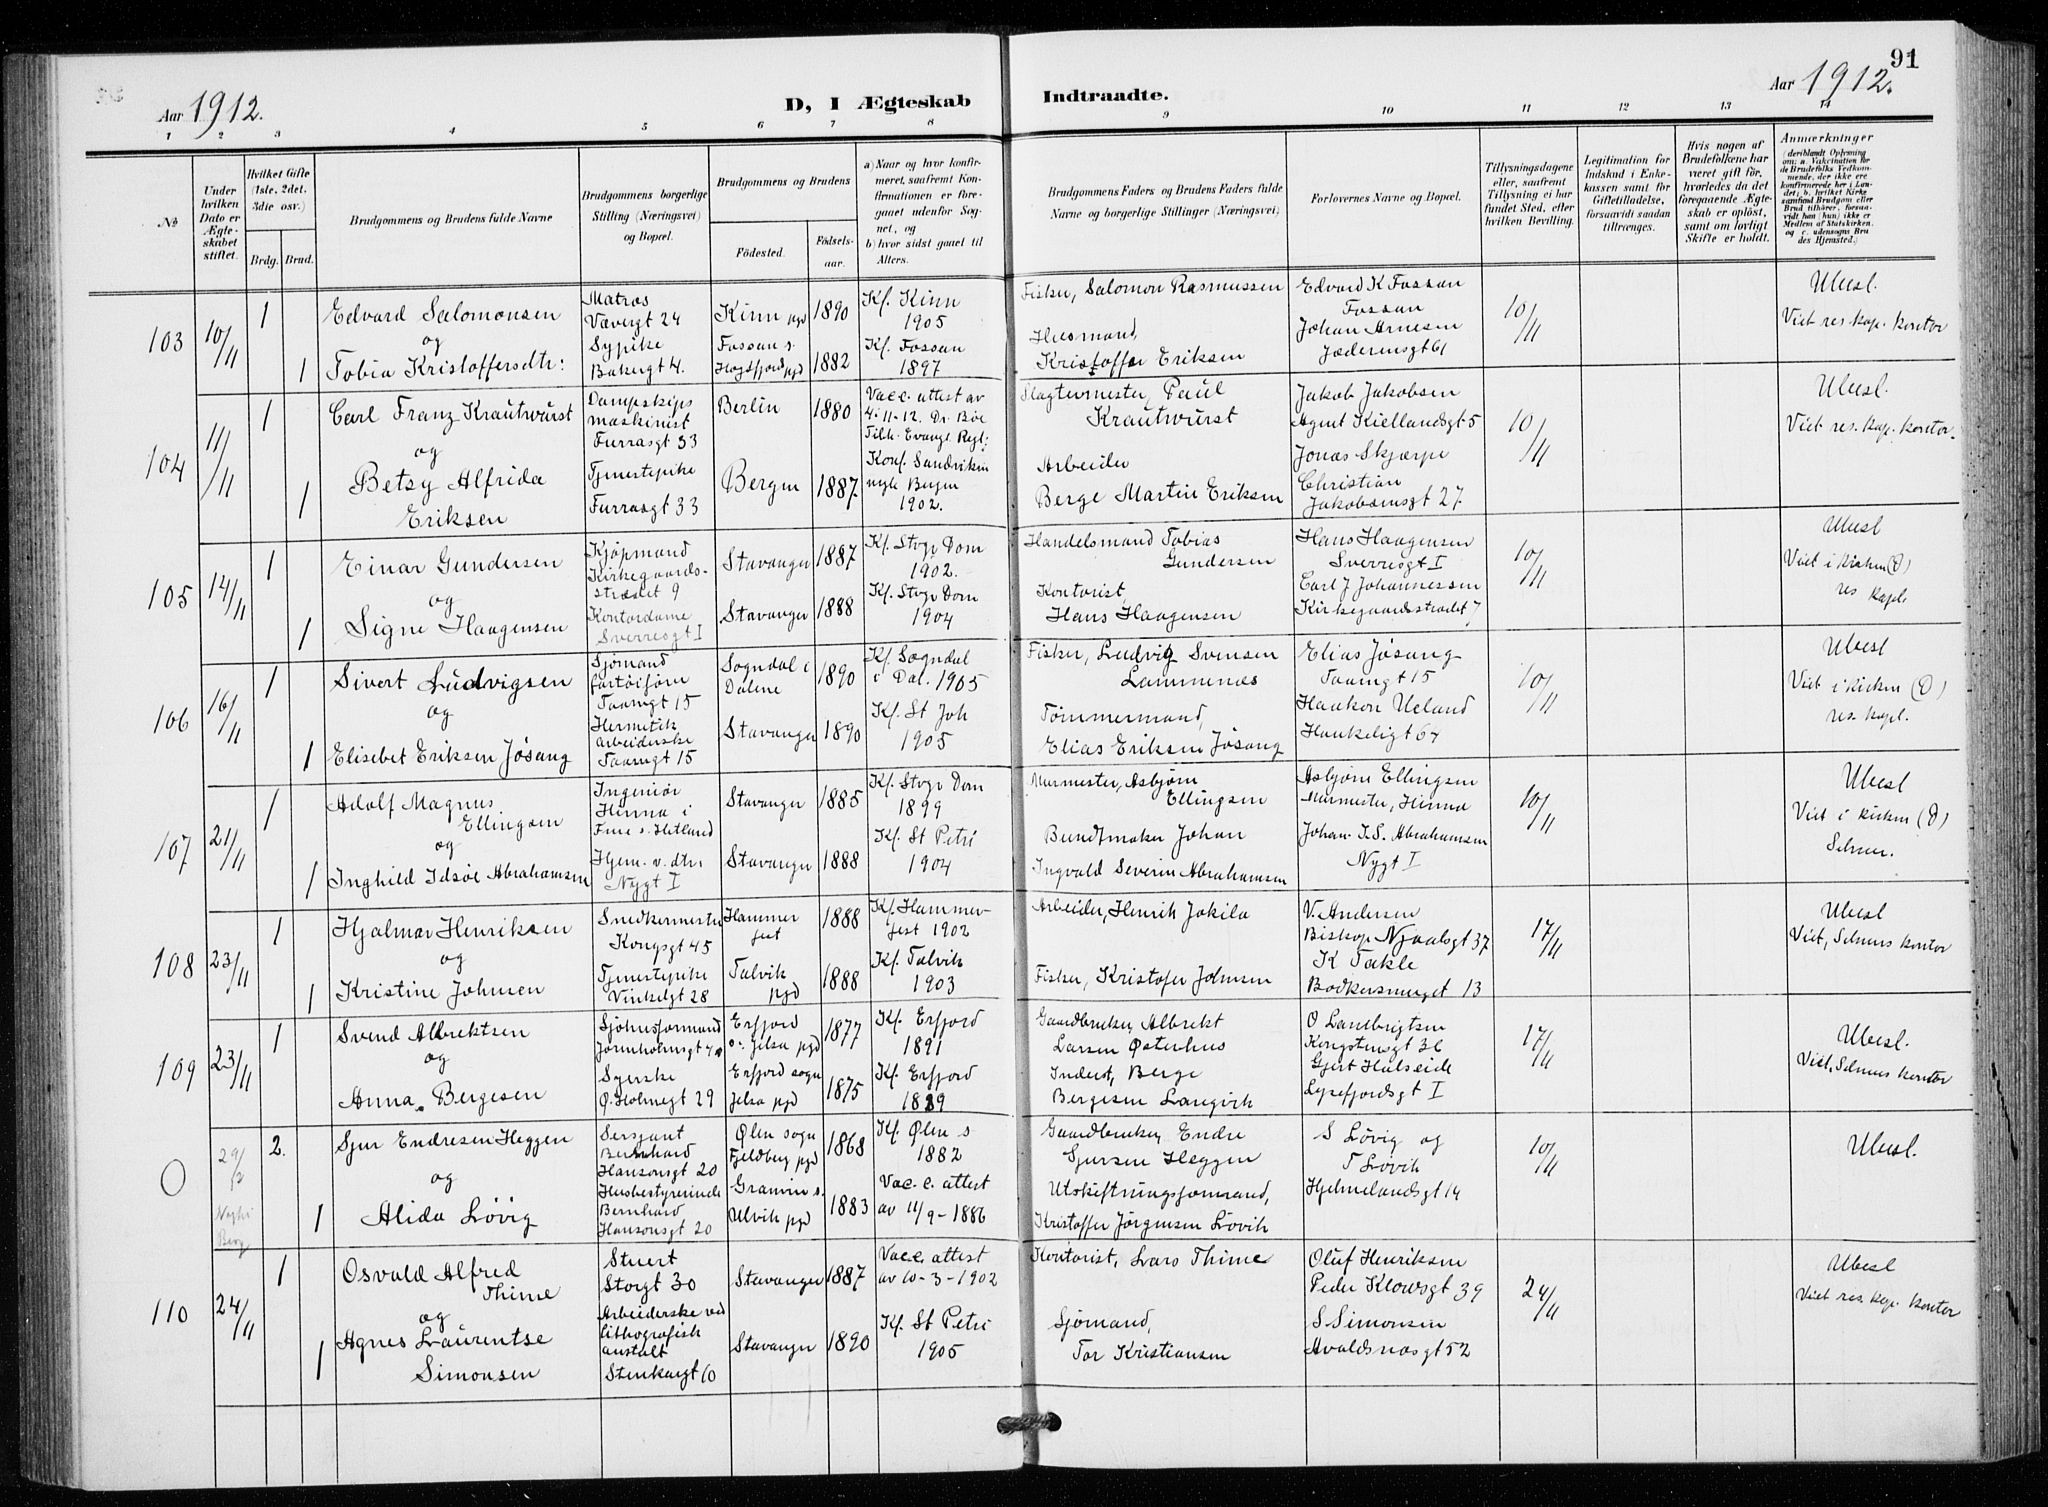 91
Aar 1912.
D, I Ægteskab
Indtraadte.
Aar 1912.
1 2 3 4 5 6 7 8 9 10 11 12 13 14
No
Under hvilken Dato er Ægteskabet stiftet.
Hvilket Gifte (1ste, 2det, 3die osv.)
Brdg. Brud.
Brudgommens og Brudens fulde Navne
Brudgommens borgerlige Stilling (Næringsvei) og Bopæl.
Brudgommens og Brudens
Fødested.
Fødselsaar.
a) Naar og hvor konfirmeret, saafremt Konfirmationen er foregaaet udenfor Sognet, og
b) hvor sidst gaaet til Alters.
Brudgommens Faders og Brudens Faders fulde Navne og borgerlige Stillinger (Næringsvei)
Forlovernes Navne og Bopæl.
Tillysningsdagene eller, saafremt Tillysning ei har fundet Sted, efter hvilken Bevilling.
Legitimation for Indskud i Enkekassen samt for Giftetilladelse, forsaavidt saadan tiltrænges.
Hvis nogen af Brudefolkene har været gift før, hvorledes da det foregaaende Ægteskab er opløst, samt om lovligt Skifte er holdt.
Anmærkninger
(deriblandt Oplysning om: a. Vakcination for Brudefolks Vedkommende, der ikke ere konfirmerede her i Landet; b. hvilket Kirkesamfund Brudgom eller Brud tilhører, forsaavidt han (hun) ikke er Medlem af Statskirken, og c. udensogns Brudes Hjemsted.)
103
10/11
1
Edvard Salomonsen
og
1
Tobia Kristoffersdtr:
Matros
Vævergt 24
Sypike
Bakergt 4.
Kinn pgd
Fossan s.
Høgsfjord pgd
1890
1882
Kf. Kinn
1905
Kf. Fossan
1897
Fisker, Salomon Rasmussen
Husmand,
Kristoffer Eriksen
Edvard K Fossan
Fossan
Johan Arnesen
Jæderensgt 61
10/11
Ubesl.
Viet res. kap. kontor
104
11/11
1
Carl Franz Krautwurst
og
1
Betsy Alfrida
Eriksen
Dampskips
maskinist
Furrasgt 33
Tjenestepike
Furrasgt 33
Berlin
Bergen
1880
1887.
Vacc. attest av
4-11-12. Dr. Bøe
Tilh. Evang. Rgl:
Konf. Sandviken
Bergen
1902.
Slagtermester, Paul
Krautwurst
Arbeider
Berge Martin Eriksen
Jakob Jakobsen
Agent Kiellandsgt 5
Jonas Skjærpe
Christian
Jakobsensgt 27
10/11
Ubesl.
Viet res. kap. kontor.
105
14/11
1
Einar Gundersen
og
1
Signe Haagensen
Kjøpmand
Kirkegaards-
strædet 9
Kontordame
Sverresgt I
Stavanger
Stavanger
1887
1888
Kf. Stvgr Dom
1902.
Kf. Stvgr Dom
1904
Handelsmand Tobias
Gundersen
Kontorist,
Hans Haagensen
Hans Haagensen
Sverresgt I
Carl J Johannessen
Kirkegaardsstrædet 7
10/11
Ubesl
Viet i kirken (D)
res kapl.
106
16/11
1
Sivert Ludvigsen
og
1
Elisebet Eriksen Jøsang
Sjømand
Taarngt 15
Hermetik
arbeiderske
Taarngt 15
Sogndal i
Dalene
Stavanger
1890
1890
Kf. Sogndal
i Dal. 1905
Kf. St Joh
1905
Fisker, Ludvig Svensen
Lammenæs
Tømmermand,
Elias Eriksen Jøsang
Elias Jøsang
Taarngt 15
Haakon Ueland
Haukeligt 67
10/11
Ubesl
Viet i kirken (D)
res. kapl.
107
21/11
1
Adolf Magnus
Ellingsen
og
1
Inghild Idsøe Abrahamsen
Ingeniør
Hinna i
s. Hetland
Hjem. v. dtr
Nygt I
Stavanger
Stavanger
1885
1888
Kf. Stvgr Dom
1899
Kf. St Petri
1904
Murmester, Asbjørn
Ellingsen
Bundtmaker Johan
Ingvald Severin Abrahamsen
Asbjørn Ellingsen
Murmester, Hinna
Johan I.S. Abrahamsen
Nygt I
10/11
Ubesl
Viet i kirken (D)
Selmer.
108
23/11
1
Hjalmar Henriksen
og
1
Kristine Johnsen
Snedkermester
Kongsgt 45
Tjenestepike
Vinkelgt 28
Hammer
fest
Talvik
pgd
1888
1888
Kf. Hammer-
fest 1902
Kf. Talvik
1903
Arbeider, Henrik Jokila
Fisker, Kristofer Johnsen
V. Andersen
Biskop Njaalsgt 37
K Takle
Bødkersmuget 13
17/11
Ubesl
Viet, Selmers kontor
109
23/11
1
Svend Albrektsen
og
Anna Bergesen
Sjøhusformand
Jorenholmsgt 4
Syerske
Ø. Holmegt 29
Erfjord
s. Jelsa pgd
Erfjord sogn
Jelsa pgd
1877
1875
Kf. Erfjord
1891
Kf. Erfjord
1889
Gaardbruker, Albrekt
Larsen Østerhus
Inderst, Berge
Bergesen Langvik
O Lambrigtsen
Kongstensgt 36
Gjert Halseide
Lysefjordsgt I
17/11
Ubesl.
Viet, Selmers kontor
O
29/12
Berg
2.
Sjur Endresen Heggen
og
1
Alida Løvig
Sersjant
Bernhard
Hansonsgt 20
Husbestyrerinde
Bernhard
Hansonsgt 20
Ølen sogn
Fjeldberg pgd
Granvin s.
Ulvik pgd
1868
1883
Kf. Ølen s
1882
Vac. c. attest
av 11/9-1886
Gaardbruker, Endre
Sjursen Heggen
Utskiftningsformand,
Kristoffer Jørgensen Løvik
S Løvig og
T Løvik
Hjelmelandsgt 14
10/11
Ubesl.
110
24/11
1
Osvald Alfred
Thime
og
1
Agnes Laurentse
Simonsen
Stuert
Storgt 30
Arbeiderske ved
lithografisk
anstalt
Stenkargt 10
Stavanger
Stavanger
1887
1890
Vacc. attest
av 10-3-1902
Kf. St Petri
1905
Kontorist, Lars Thime
Sjømand,
Tor Kristiansen
Oluf Henriksen
Peder Klowsgt 39
S Simonsen
Avaldsnæsgt 52
24/11
Ubesl
Viet res. kap. kontor